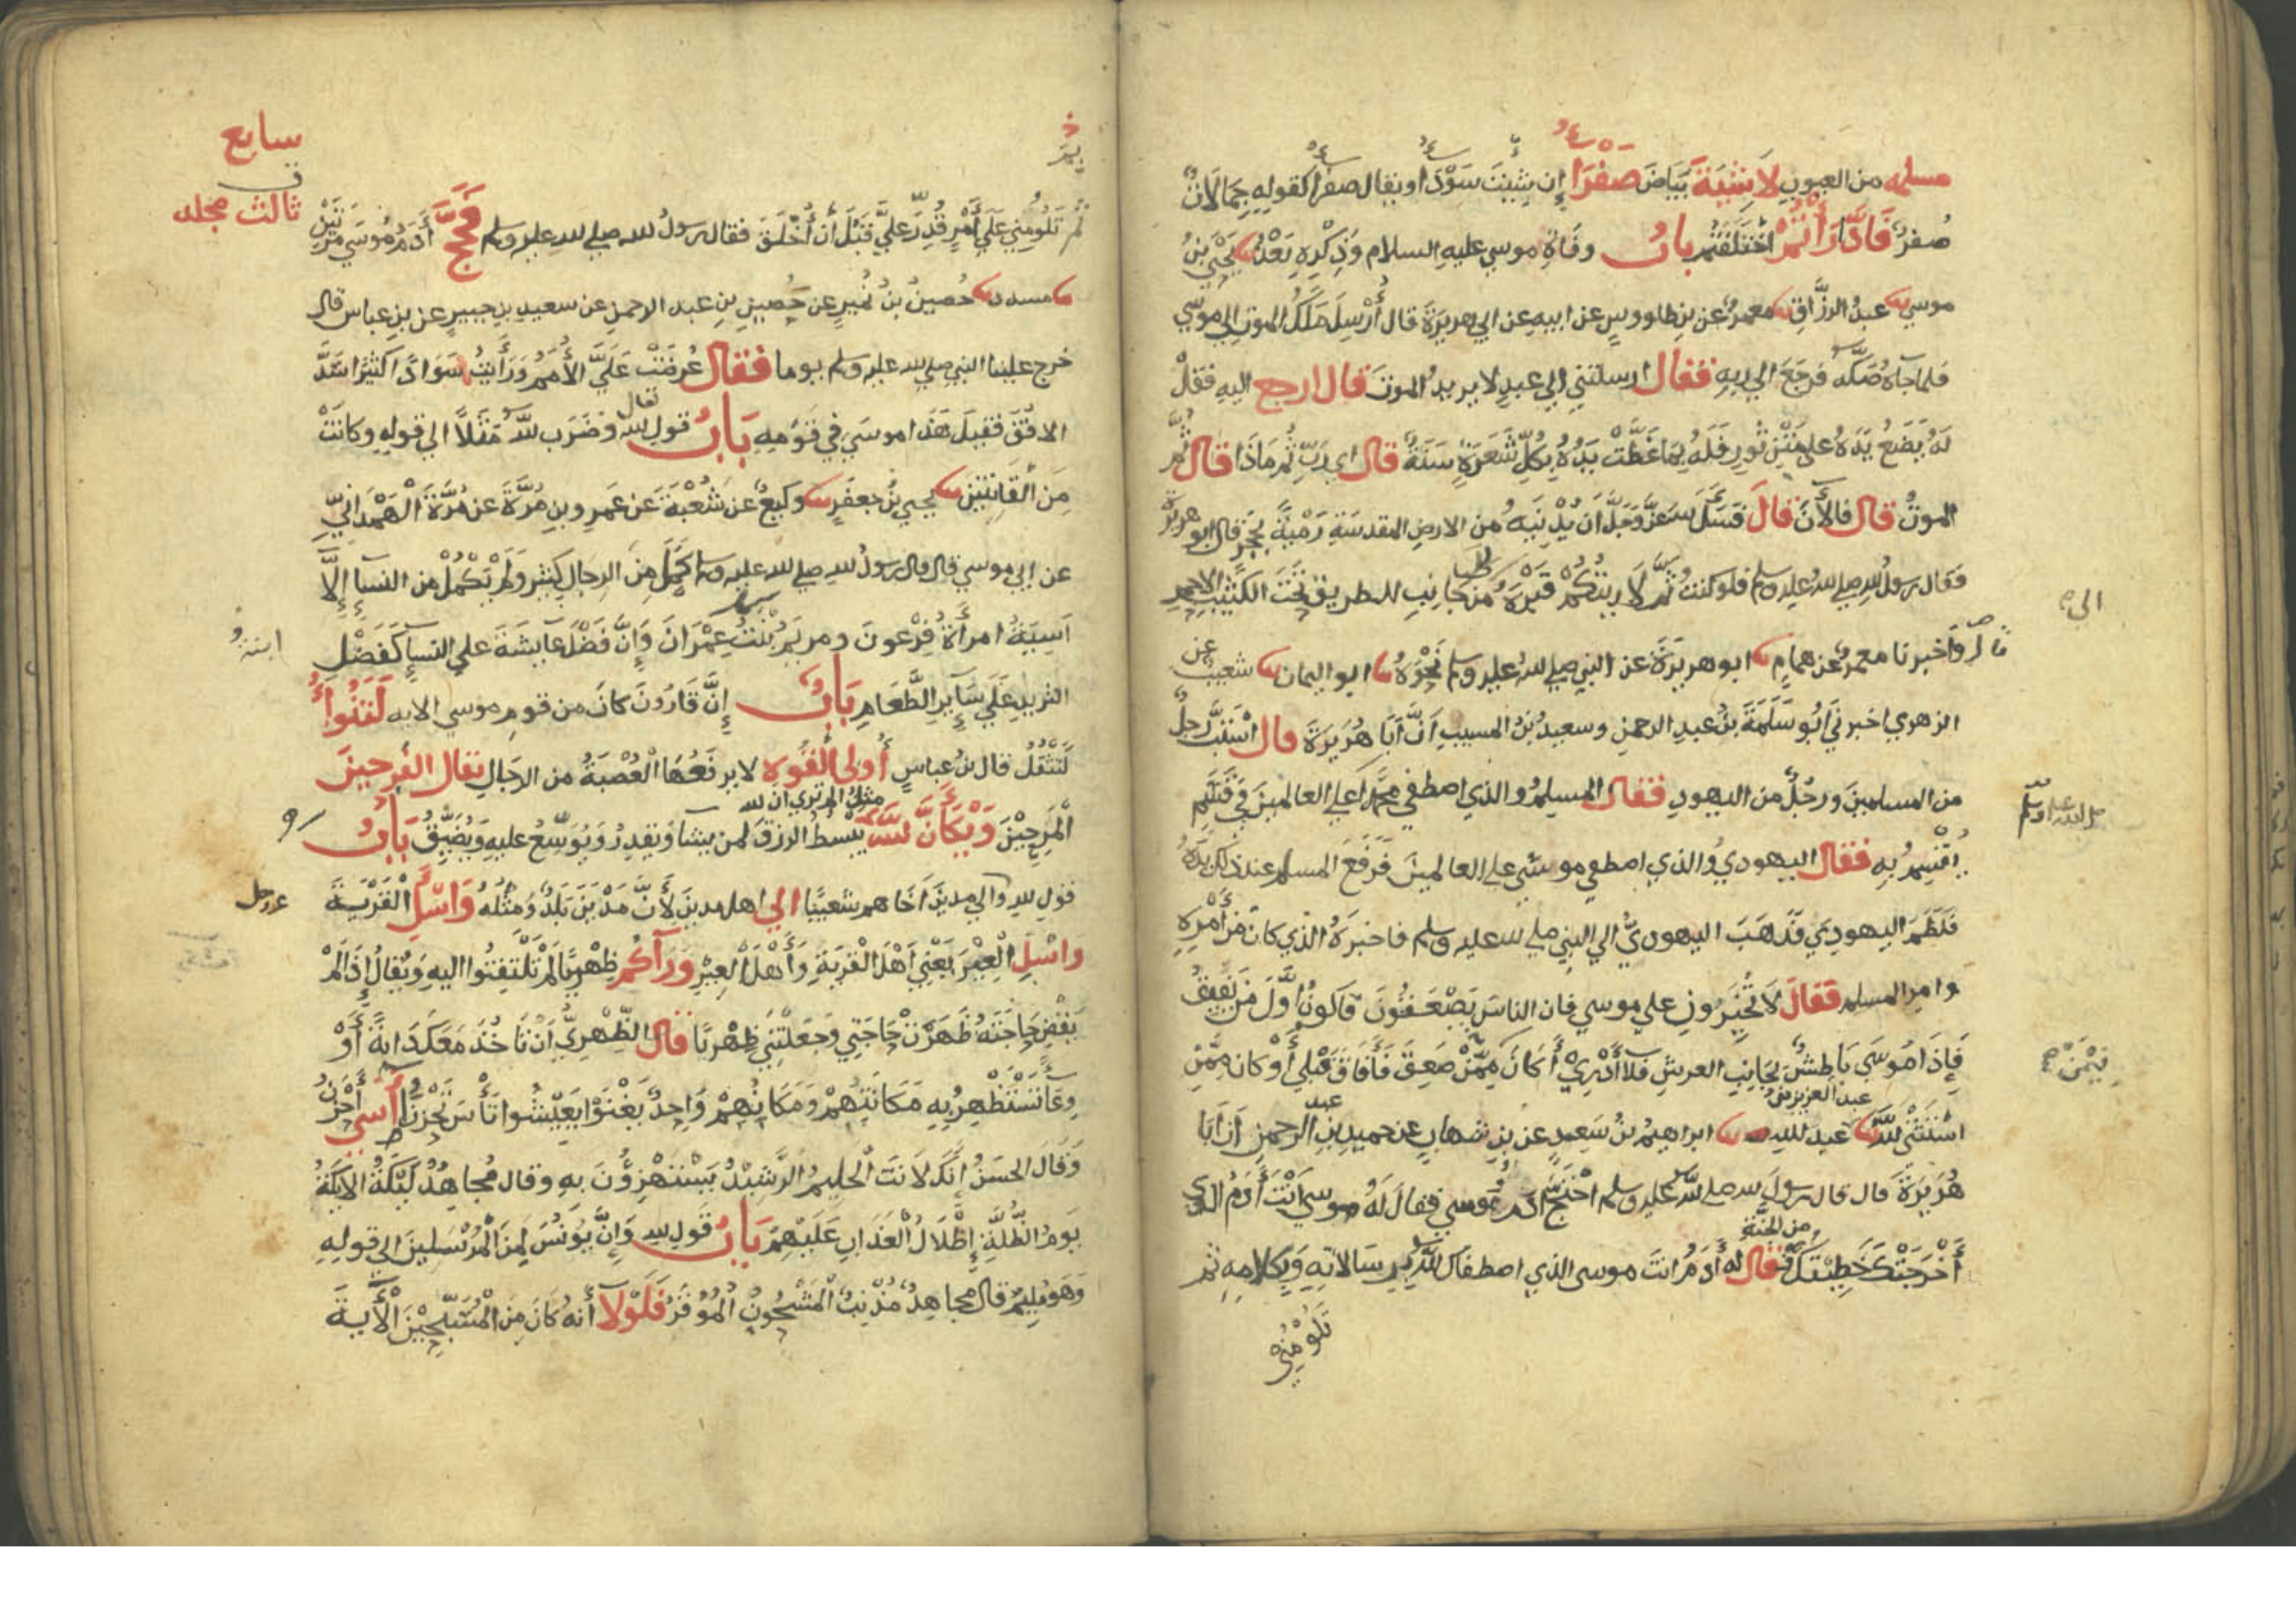 مسلمه من العيوب لا شية بياض صفرا إن شئت سودا ويقال صفرا كقوله جمالات
صفر فادارأتم اختلفتم باب وفاة موسى عليه السلام وذكره بعد يحيى بن
موسى عبد الرزاق معمر عن بن طاووس عن ابيه عن ابي هريرة قال أرسل ملك الموت الى موسى
فلما جآه صكه فرجع الى ربه فقال ارسلتني الى عبد لا يريد الموت قال ارجع اليه فقل
له يضع يده على متن ثور فله بما غطت يده بكل شعرة سنة قال اي رب ثم ماذا قال ثم
الموت قال فالآن قال فسئل عز وجل أن يدنيه من الارض المقدسة رمية بحجر قال ابو هريرة
فقال رسول الله صلى الله عليه وسلم فلو كنت ثم لاريتكم قبره من جانب الطريق تحت الكثيب الاحمر
الى
قال واخبرنا معمر عن همام ابو هريرة عن النبي صلى الله عليه وسلم نحوه ابو اليمان شعيب عن
الزهري اخبرني ابو سلمة بن عبد الرحمن وسعيد بن المسيب أن أبا هريرة قال استب رجل
من المسلمين ورجل من اليهود فقال المسلم والذي اصطفى محمدا على العالمين في قسم
صلى الله عليه وسلم
يقسم به فقال اليهودي والذي اصطفى موسى على العالمين فرفع المسلم عند ذلك يده
فلطم اليهودي فذهب اليهودي الى النبي صلى الله عليه وسلم فاخبره الذي كان من أمره
وامر المسلم فقال لا تخيروني على موسى فان الناس يصعقون فاكون أول من يفيق
فإذا موسى باطش بجانب العرش فلا أدري أكان ممن صعق فأفاق قبلي أو كان ممن
فيمن
استثنى الله عبد العزيز بن عبد الله ابراهيم بن سعد عن بن شهاب عن حميد بن عبد الرحمن أن أبا
هريرة قال قال رسول الله صلى الله عليه وسلم احتج آدم وموسى فقال له موسى أنت أدم الذي
أخرجتك خطيئتك من الجنة فقال له أدم أنت موسى الذي اصطفاك الله برسالاته وبكلامه ثم
تلومني
سابع
ثالث مجلد
ثم تلومني على أمر قدر علي قبل أن أخلق فقال رسول الله صلى الله عليه وسلم فحج أدم موسى مرتين
مسدد حصين بن نمير عن حصين بن عبد الرحمن عن سعيد بن جبير عن بن عباس قال
خرج علينا النبي صلى الله عليه وسلم يوما فقال عرضت علي الأمم ورأيت سوادا كثيرا سد
الافق فقيل هذا موسى في قومه باب قول الله تعالى وضرب الله مثلا الى قوله وكانت
من القانتين يحيى بن جعفر وكيع عن شعبة عن عمرو بن مرة عن مرة الهمداني
عن ابي موسى قال قال رسول الله صلى الله عليه وسلم كمل من الرجال كثير ولم يكمل من النسا إلا
آسية امرأة فرعون ومريم بنت عمران وإن فضل عايشة على النسا كفضل
ابنة
الثريد على سآير الطعام باب إن قارون كان من قوم موسى الايه لتنوأ
لتثقل قال بن عباس أولى القوه لا يرفعها العصبة من الرجال يقال الفرحين
المرحين ويكأن الله مثل الم تري ان الله يبسط الرزق لمن يشا ويقدر ويوسع عليه ويضيق باب
قول الله والى مدين أخاهم شعيبا الى اهل مدين لأن مدين بلد ومثله واسئل القرية
عز وجل
واسئل العير يعني أهل القرية وأهل العير ورآكم ظهريا لم تلتفتوا اليه ويقال إذا لم
يقض حاجته ظهرت حاجتي وجعلتني ظهريا قال الظهري أن تاخذ معك دابة أو
وعآ تستظهر به مكانتهم ومكانهم واحد يغنوا يعيشوا تأس تحزن أسى أحزن
وقال الحسن إنك لانت الحليم الرشيد يستهزؤن به وقال مجاهد ليكة الايكة
يوم الظلة إظلال العذاب عليهم باب قول الله وإن يونس لمن المرسلين الى قوله
وهو مليم قال مجاهد مذنب المشحون الموقر فلولا أنه كان من المسبحين الأية